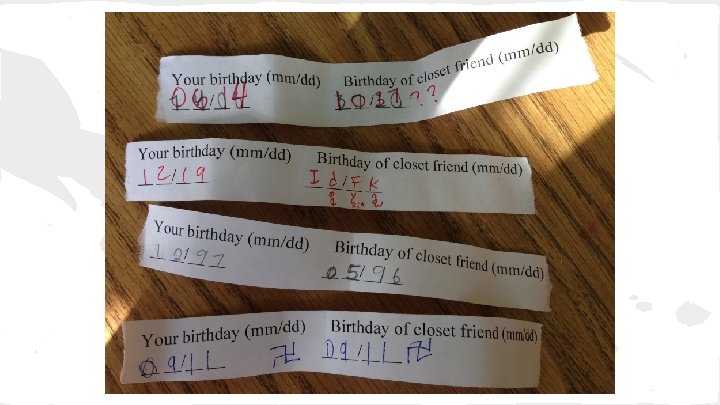 Your birthday (mm/dd) Birthday of closet friend (mm/dd)
06/04 ??
Your birthday (mm/dd) Birthday of closet friend (mm/dd)
12/19 Id/Fk
Your birthday (mm/dd) Birthday of closet friend (mm/dd)
10/97 05/96
Your birthday (mm/dd) Birthday of closet friend (mm/dd)
09/11 卐 09/11 卐